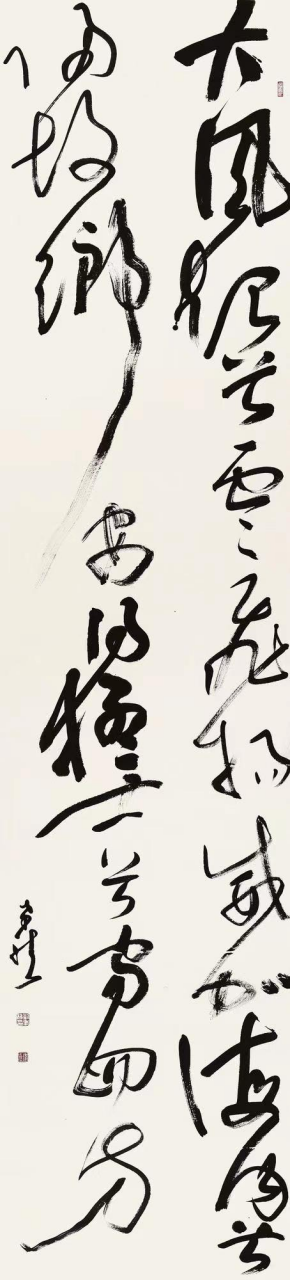 大風起兮雲飛揚威加海内兮
歸故鄉安得猛士兮守四方